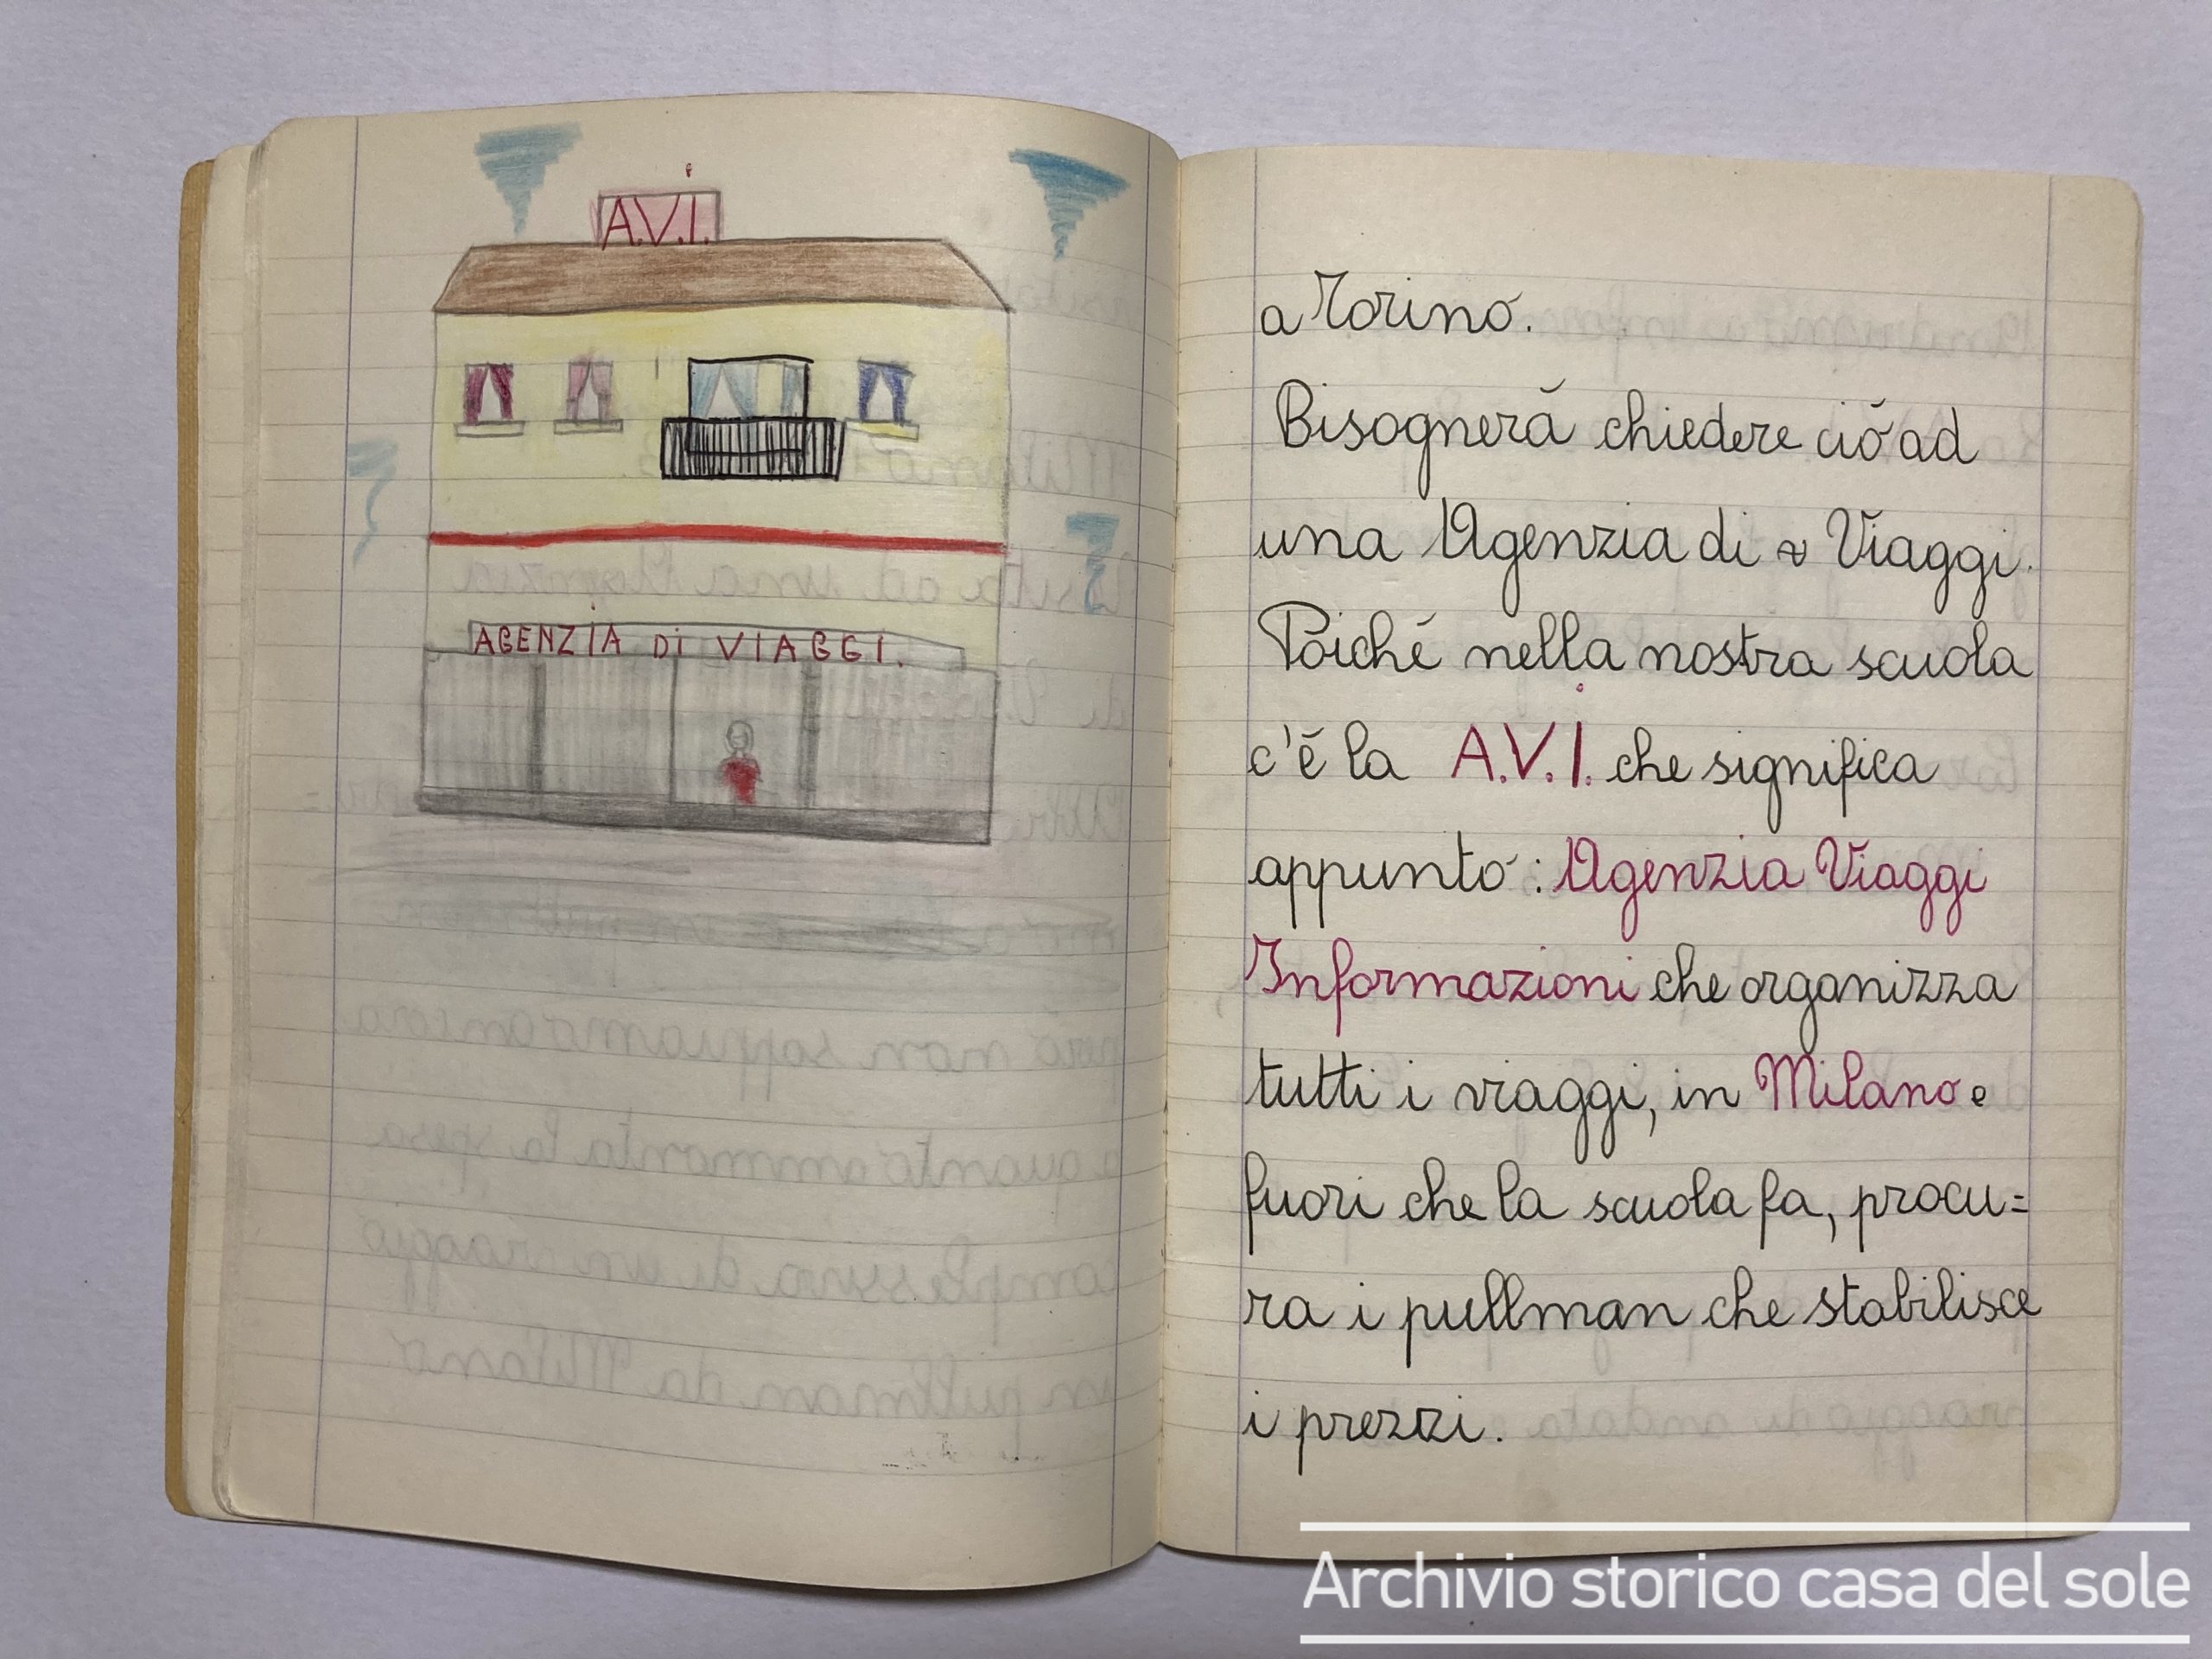 A.V.I.
AGENZIA Di VIAGGI.
a Torino.
Bisognerà chiedere ciò ad
una Agenzia di v Viaggi.
Poiché nella nostra scuola
c'è la A.V.I. che significa
appunto: Agenzia Viaggi
Informazioni che organizza
tutti i viaggi, in Milano e
fuori che la scuola fa, procu=
ra i pullman che stabilisce
i prezzi.
Archivio storico casa del sole